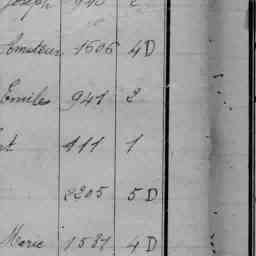 Joseph 940 2
Amateur 1506 4D
Emiles 941 2
t 111 1
2205 5D
Marie 1581 4D